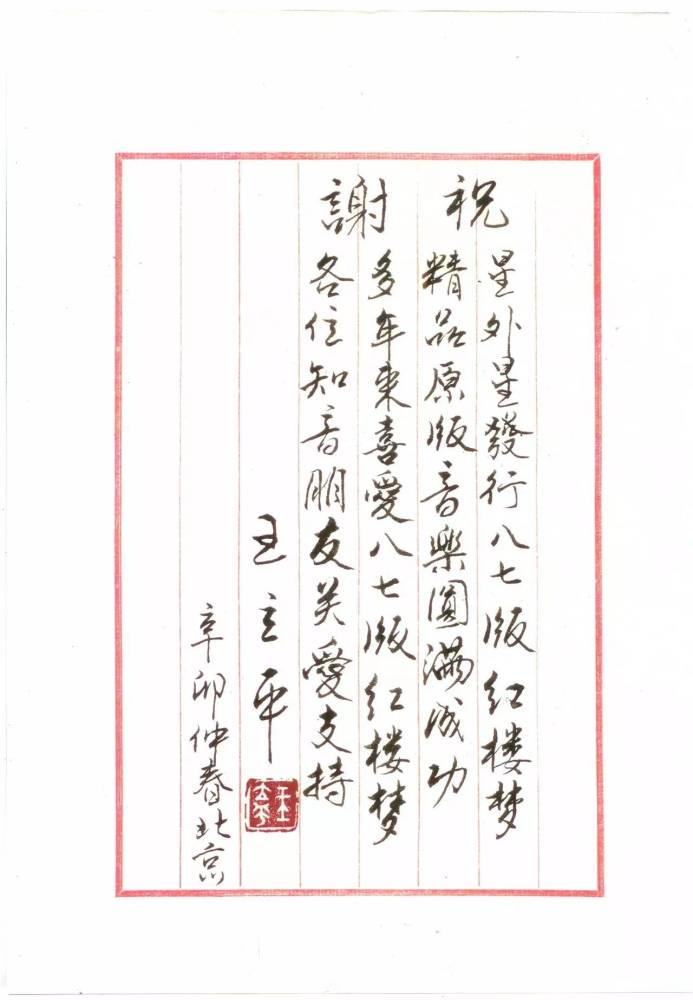 祝
星外星發行八七版红楼梦
精品原版音樂圓满成功
謝
多年来喜愛八七版红楼梦
各位知音朋友关愛支持
王立平
辛卯仲春北京